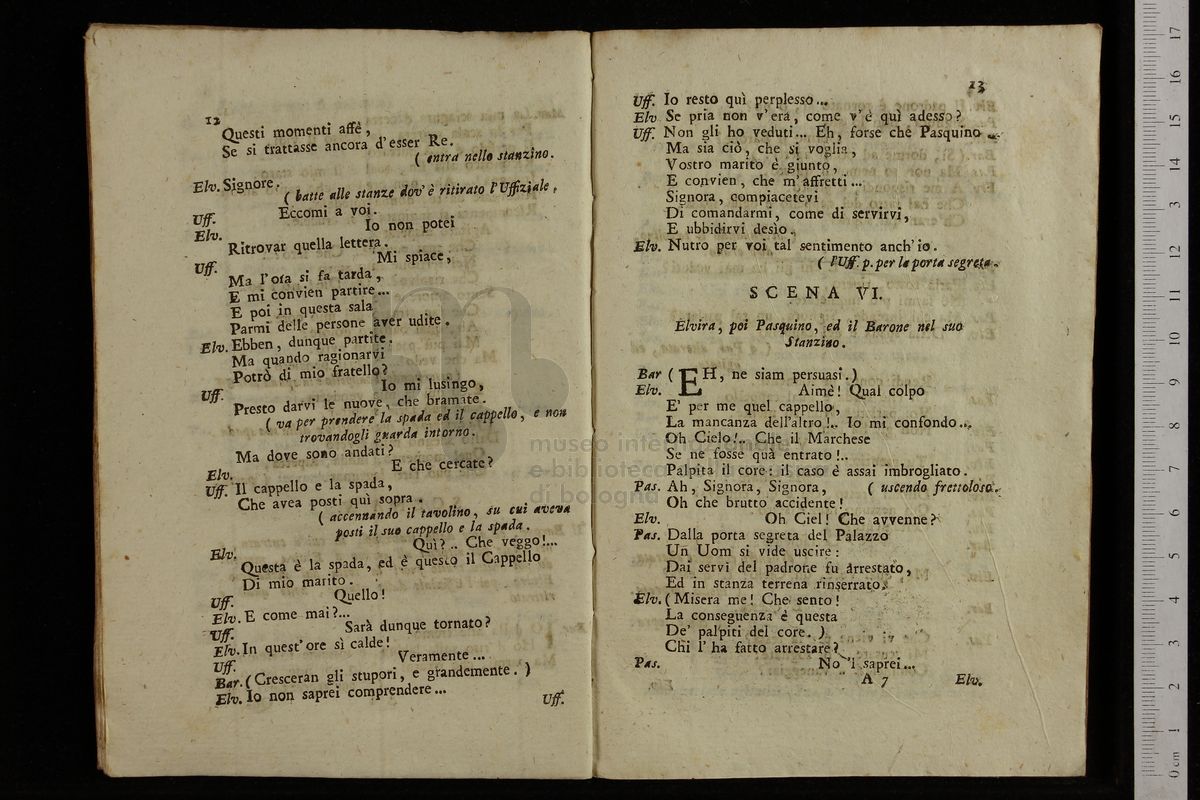 12
Questi momenti affè,
Se si trattasse ancora d'esser Re.
( entra nello stanzino.
Elv. Signore.
( batte alle stanze dov' è ritirato l'Uffiziale,
Uff. Eccomi a voi.
Elv. Io non potei
Ritrovar quella lettera.
Uff. Mi spiace,
Ma l'ora si fa tarda,
E mi convien partire...
E poi in questa sala
Parmi delle persone aver udite.
Elv. Ebben, dunque partite.
Ma quando ragionarvi
Potrò di mio fratello?
Uff. Io mi lusingo,
Presto darvi le nuove, che bramate.
( va per prendere la spada ed il cappello, e non
trovandogli guarda intorno.
Ma dove sono andati?
Elv. E che cercate?
Uff. Il cappello e la spada,
Che avea posti quì sopra.
( accennando il tavolino, su cui aveva
posti il suo cappello e la spada.
Elv. Quì?.. Che veggo!...
Questa è la spada, ed è questo il Cappello
Di mio marito.
Uff. Quello!
Elv. E come mai?...
Uff. Sarà dunque tornato?
Elv. In quest' ore sì calde!
Uff. Veramente...
Bar. (Cresceran gli stupori, e grandemente.)
Elv. Io non saprei comprendere...
Uff.
13
Uff. Io resto quì perplesso...
Elv Se pria non v'era, come v'è quì adesso?
Uff. Non gli ho veduti... Eh, forse che Pasquino...
Ma sia ciò, che si voglia,
Vostro marito è giunto,
E convien, che m'affretti...
Signora, compiacetevi
Di comandarmi, come di servirvi,
E ubbidirvi desio.
Elv. Nutro per voi tal sentimento anch' io.
( l'Uff. p. per la porta segreta.
SCENA VI.
Elvira, poi Pasquino, ed il Barone nel suo
Stanzino.
Bar (EH, ne siam persuasi.)
Elv. Aimè! Qual colpo
E' per me quel cappello,
La mancanza dell'altro!.. Io mi confondo...
Oh Cielo!.. Che il Marchese
Se ne fosse quà entrato!..
Palpita il core: il caso è assai imbrogliato.
Pas. Ah, Signora, Signora, ( uscendo frettoloso.
Oh che brutto accidente!
Elv. Oh Ciel! Che avvenne?
Pas. Dalla porta segreta del Palazzo
Un Uom si vide uscire:
Dai servi del padrone fu arrestato,
Ed in stanza terrena rinserrato.
Elv. (Misera me! Che sento!
La conseguenza è questa
De' palpiti del core. )
Chi l' ha fatto arrestare?
Pas. No 'l saprei...
A 7
Elv.
museo
e-biblioteca
di bologna